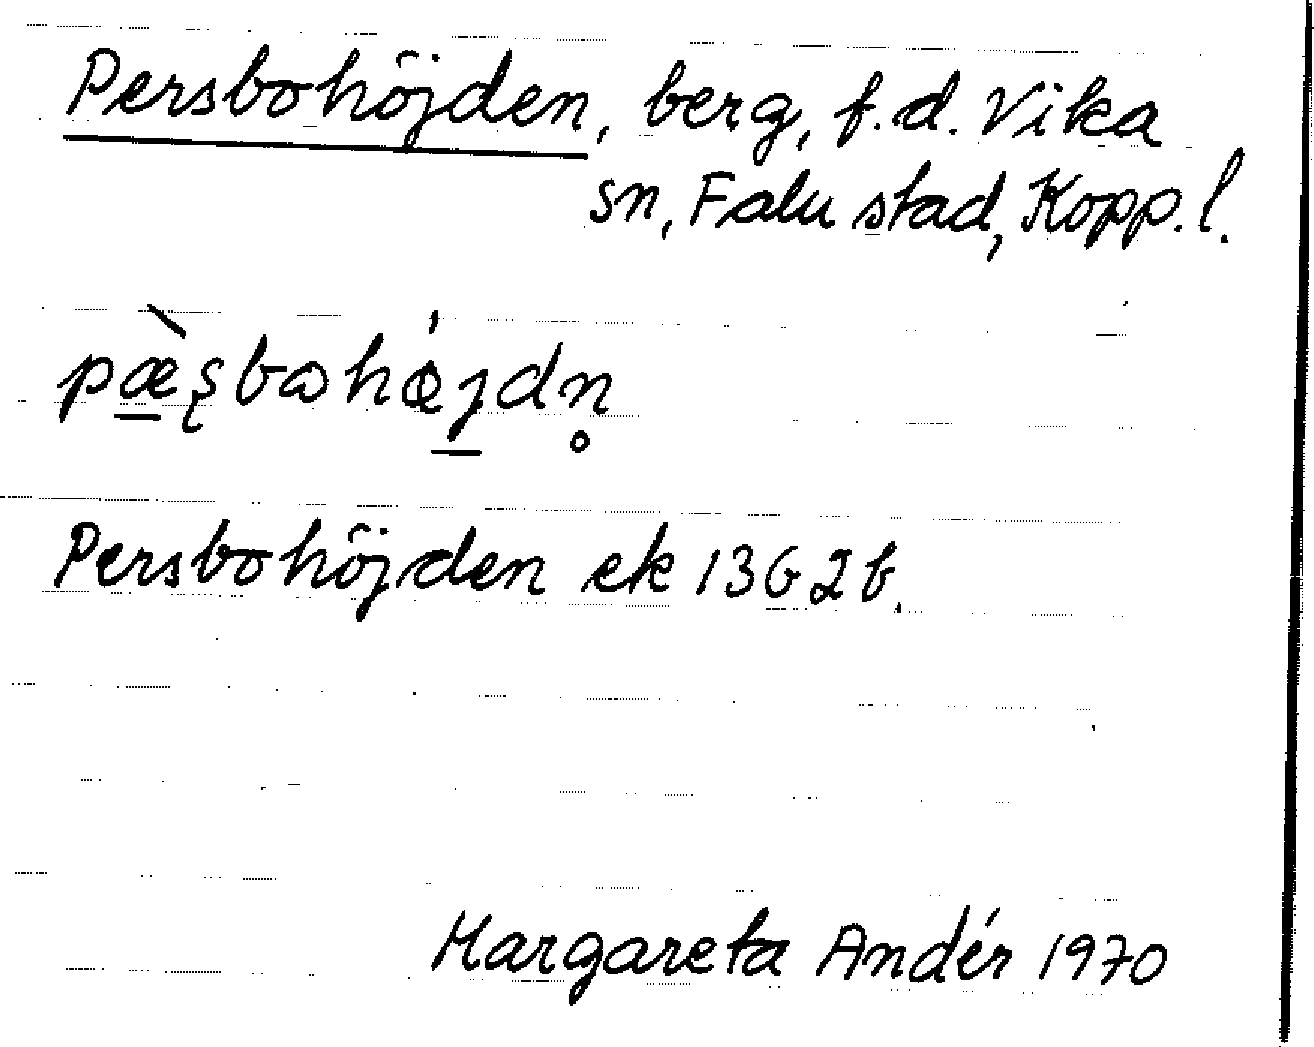 Persbohöjden, berg, f.d. Vika
sn, Falu stad, Kopp. l.
pæ̠̀ʂbɷhǿj̠dn̥
Persbohöjden ek 13G2b.
Margareta Andér 1970